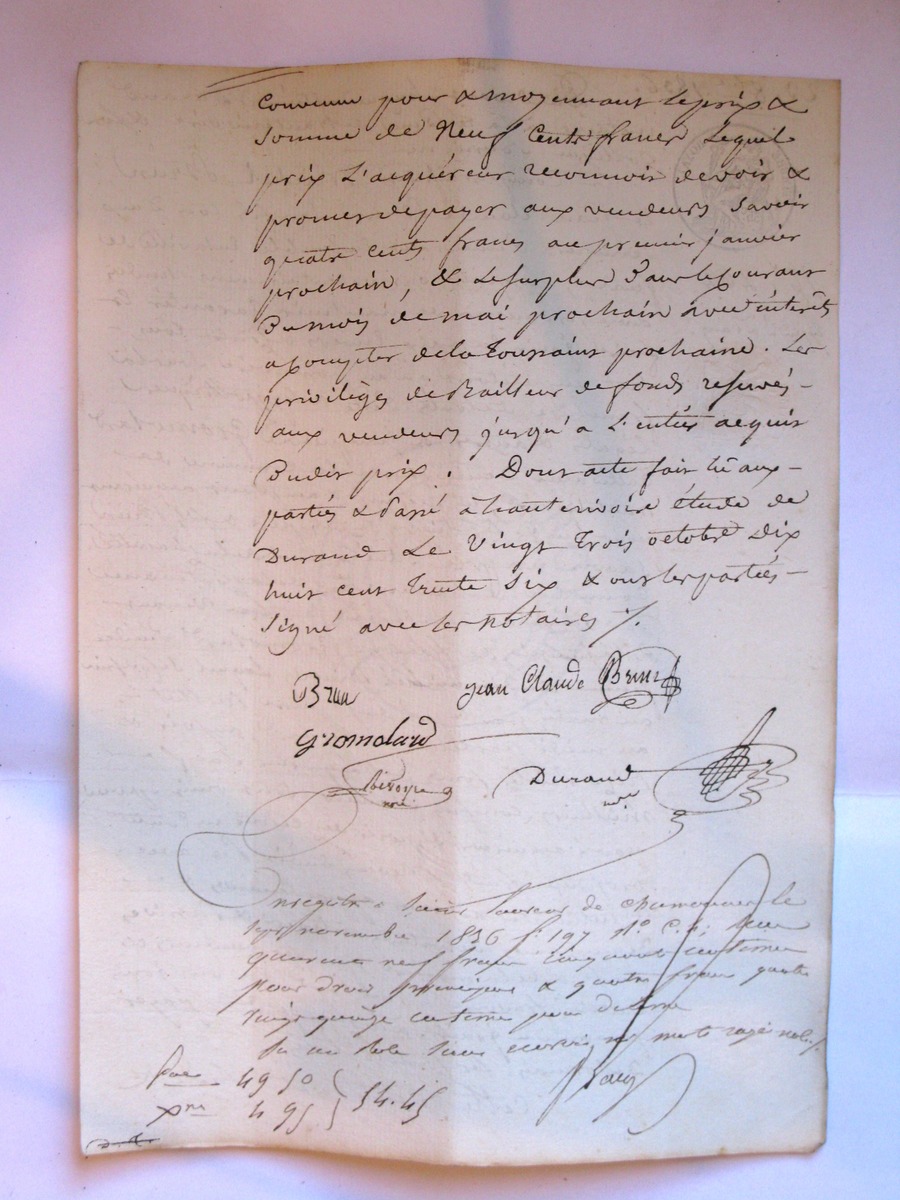 Convenue pour & moyennant le prix &
somme de Neuf Cents francs Lequel
prix L'acquéreur reconnoit devoir &
promet de payer aux vendeurs Savoir
quatre cents francs au premier janvier
prochain, & Le surplus Dans le Courant
Du mois de mai prochain avec intérêts
a Compter de la Toussaint prochaine. Les
privilèges de Bailleur de fonds reservés -
aux vendeurs jusqu'a L'entier acquit
Dudit prix. Dont acte fait lû aux -
parties & Passé à hauterivoire étude de
Durand Le Vingt Trois octobre Dix
huit cent Trente Six & ont les parties -
Signé avec les notaires ./.
Brun
jean Claude Brun
Gromolard
nre
Durand
nre
Enregistré a Saint Laurent de chamousset le
sept novembre 1836 f° 197 R° C. reçu
quarante neuf francs Cinquante centimes
pour droit principal & quatre francs quatre
vingt quinze centimes pour décime
mots rayé nuls ./.
Pal 49 50
54.45
Xme 4 95